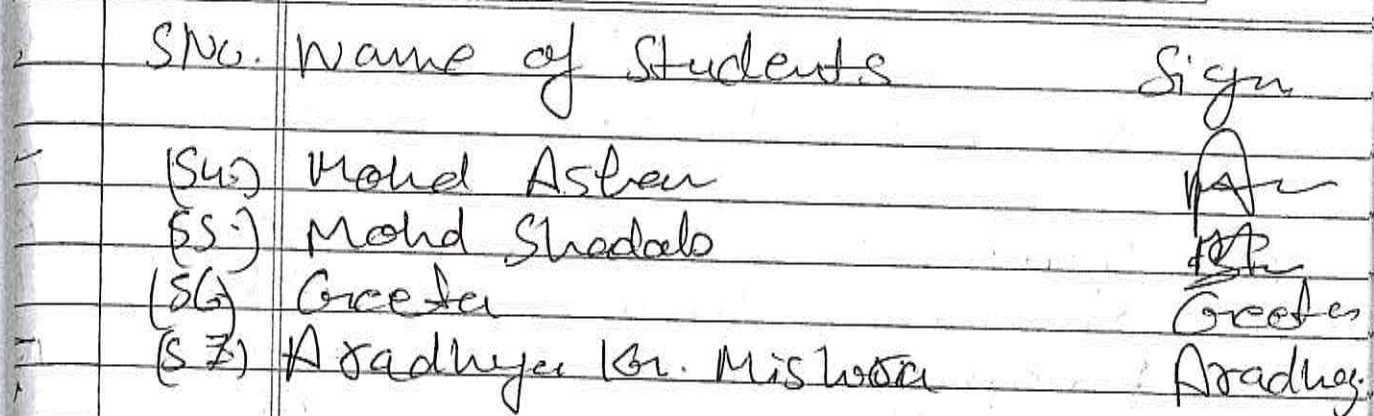 SNo. Name of Students Sign
(54.) Mohd
(55.) Mohd Shadab
(56) Geeta Geeta
(57) Aradhya Kr. Mishra Aradhy